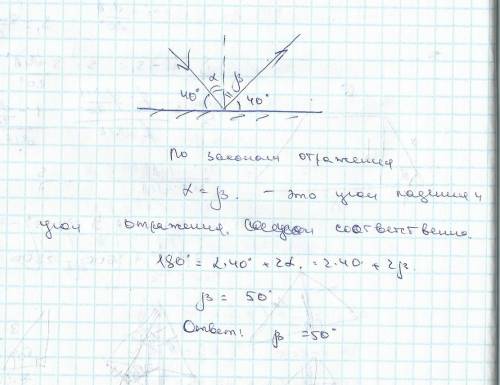 α β
40° 40°
По законам отражения
α = β. – это угол падения и
угол отражения соответственно.
180° = 2·40° + 2α = 2·40 + 2β
β = 50°
Ответ: β = 50°